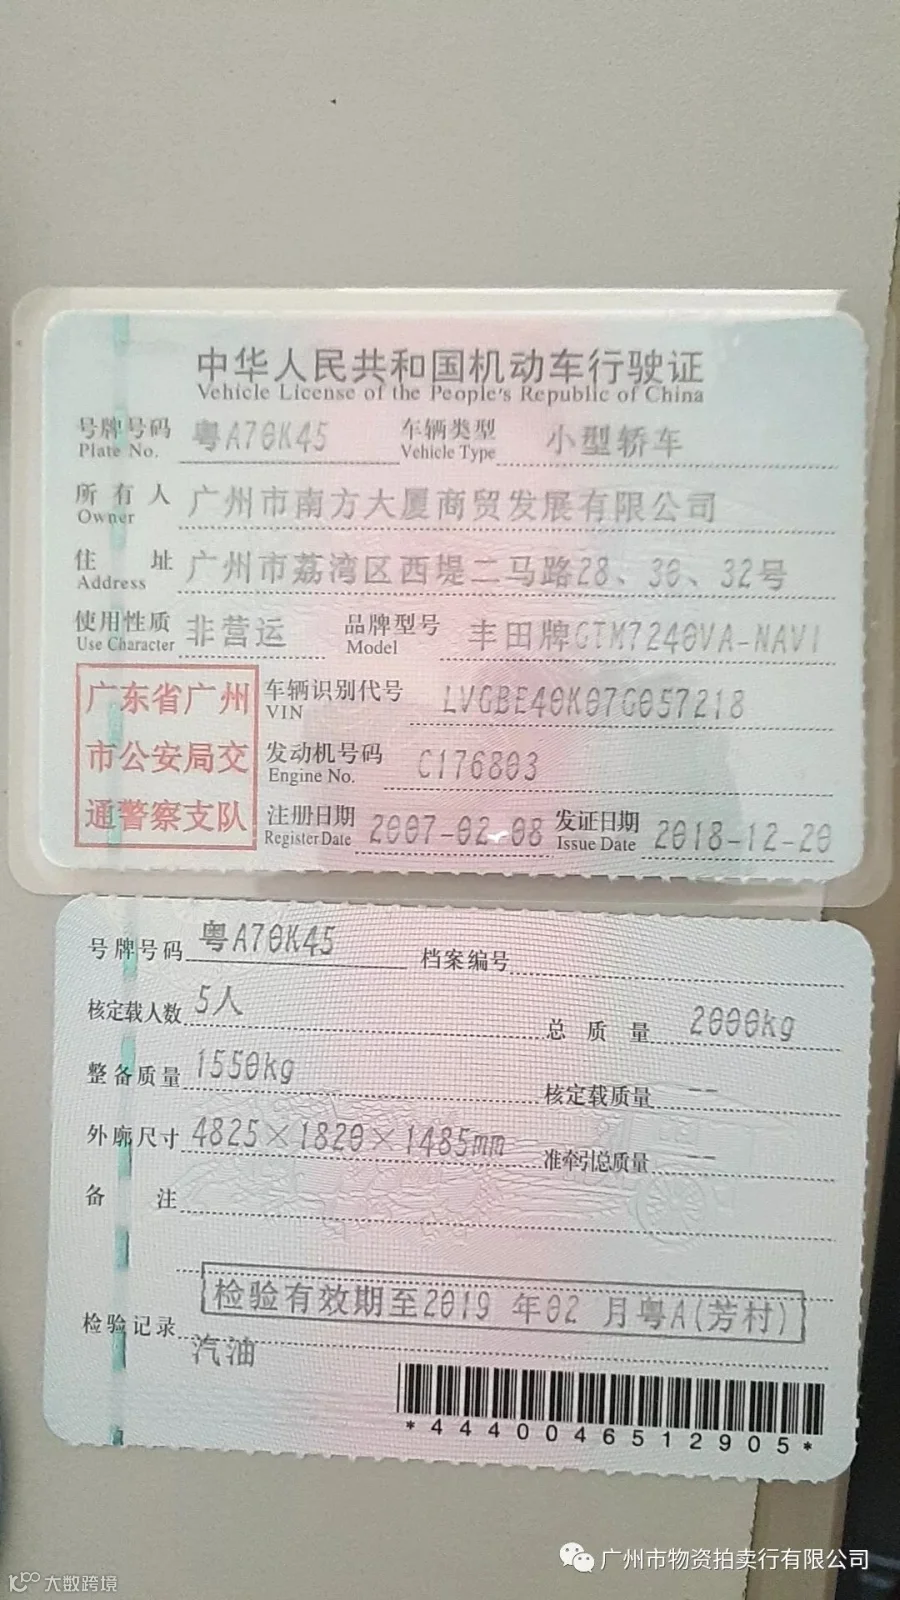 中华人民共和国机动车行驶证
Vehicle License of the People's Republic of China
号牌号码 粤A70K45 车辆类型 小型轿车
Plate No. Vehicle Type
所有人 广州市南方大厦商贸发展有限公司
Owner
住址 广州市荔湾区西堤二马路28、30、32号
Address
使用性质 非营运 品牌型号 丰田牌GTM7240VA-NAVI
Use Character Model
广东省广州
市公安局交
通警察支队
车辆识别代号 LVGBE40K07G057218
VIN
发动机号码 C176803
Engine No.
注册日期 2007-02-08 发证日期 2018-12-20
Register Date Issue Date
号牌号码 粤A70K45 档案编号
核定载人数 5人 总质量 2000kg
整备质量 1550kg 核定载质量 --
外廓尺寸 4825×1820×1485mm 准牵引总质量 --
备注
检验有效期至2019 年02 月粤A(芳村)
检验记录
汽油
*4440046512905*
广州市物资拍卖行有限公司
大数跨境